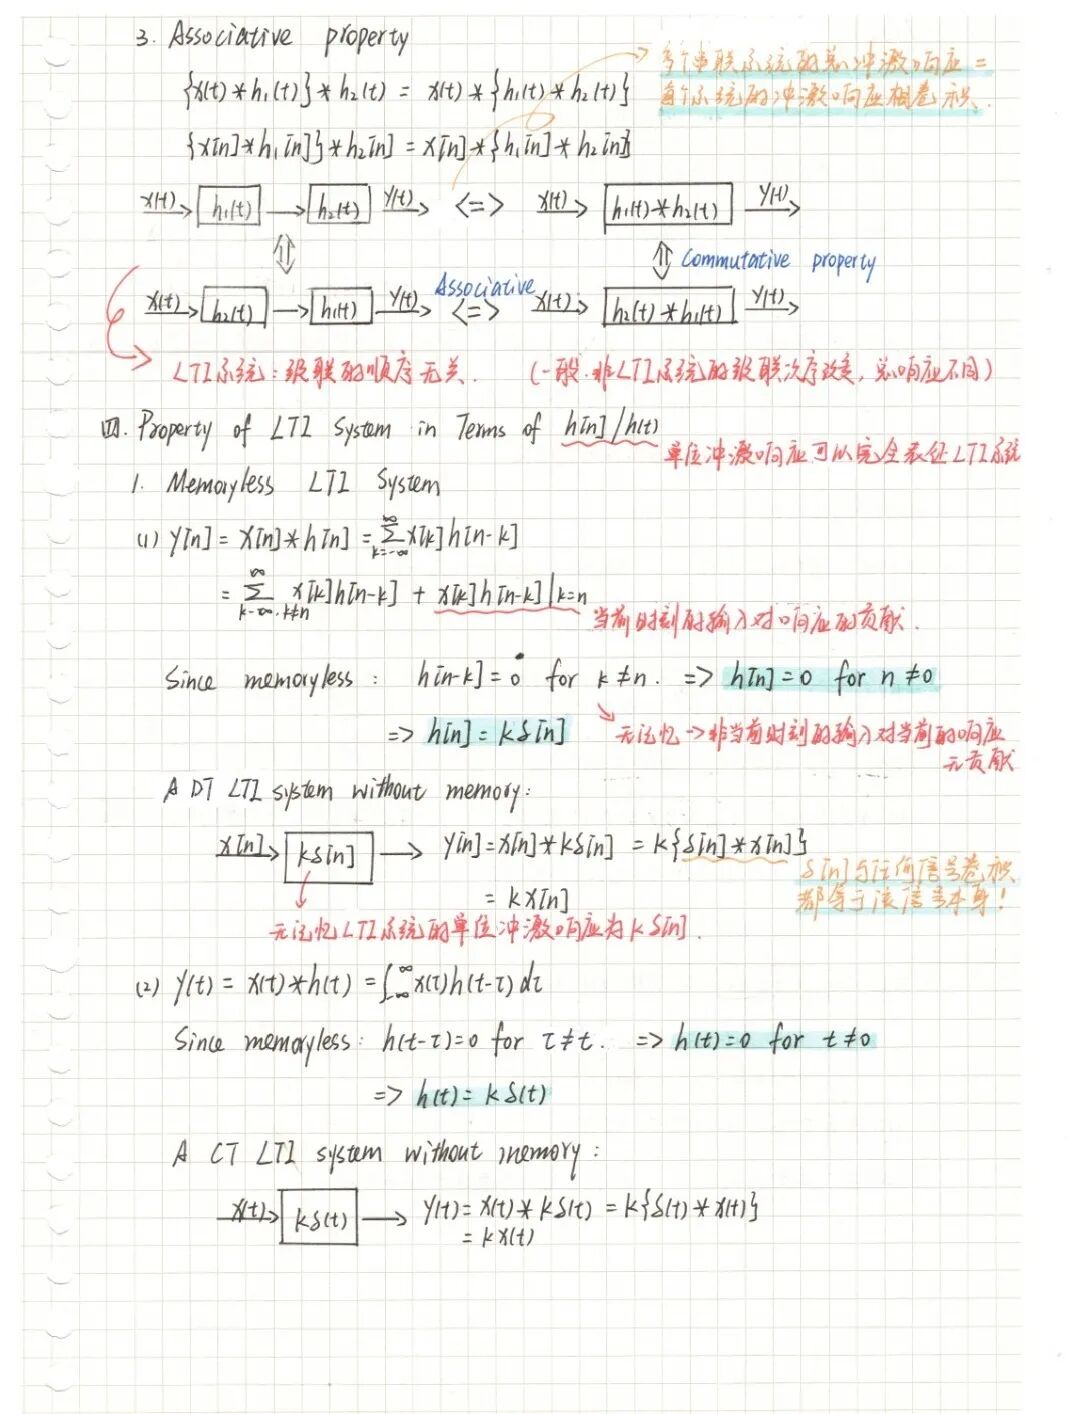 3. Associative property
多个串联系统的总冲激响应 =
每个系统的冲激响应相卷积.
{x(t)*h₁(t)}*h₂(t) = x(t)*{h₁(t)*h₂(t)}
{x[n]*h₁[n]}*h₂[n] = x[n]*{h₁[n]*h₂[n]}
x(t) → h₁(t) → h₂(t) y(t) → <=> x(t) → h₁(t)*h₂(t) y(t) →
⇕ ⇕ Commutative property
x(t) → h₂(t) → h₁(t) y(t) → Associative <=> x(t) → h₂(t)*h₁(t) y(t) →
LTI系统: 级联的顺序无关. (一般.非LTI系统的级联次序改变, 总响应不同)
四. Property of LTI System in Terms of h[n]/h(t)
单位冲激响应可以完全表征LTI系统
1. Memoryless LTI System
(1) y[n] = x[n]*h[n] = ∑_{k=-∞}^{∞} x[k]h[n-k]
= ∑_{k-∞.k≠n}^{∞} x[k]h[n-k] + x[k]h[n-k]|k=n
当前时刻的输入对响应的贡献.
Since memoryless: h[n-k]=0 for k≠n. => h[n]=0 for n≠0
=> h[n]=kδ[n]
无记忆→非当前时刻的输入对当前的响应
无贡献
A DT LTI system without memory:
x[n] → kδ[n] → y[n]=x[n]*kδ[n] = k{δ[n]*x[n]}
= kx[n]
δ[n]与任何信号卷积
都等于该信号本身!
无记忆LTI系统的单位冲激响应为kδ[n].
(2) y(t) = x(t)*h(t) = ∫_{-∞}^{∞} x(τ)h(t-τ)dτ
Since memoryless: h(t-τ)=0 for τ≠t. => h(t)=0 for t≠0
=> h(t)=kδ(t)
A CT LTI system without memory:
x(t) → kδ(t) → y(t)=x(t)*kδ(t) = k{δ(t)*x(t)}
= kx(t)